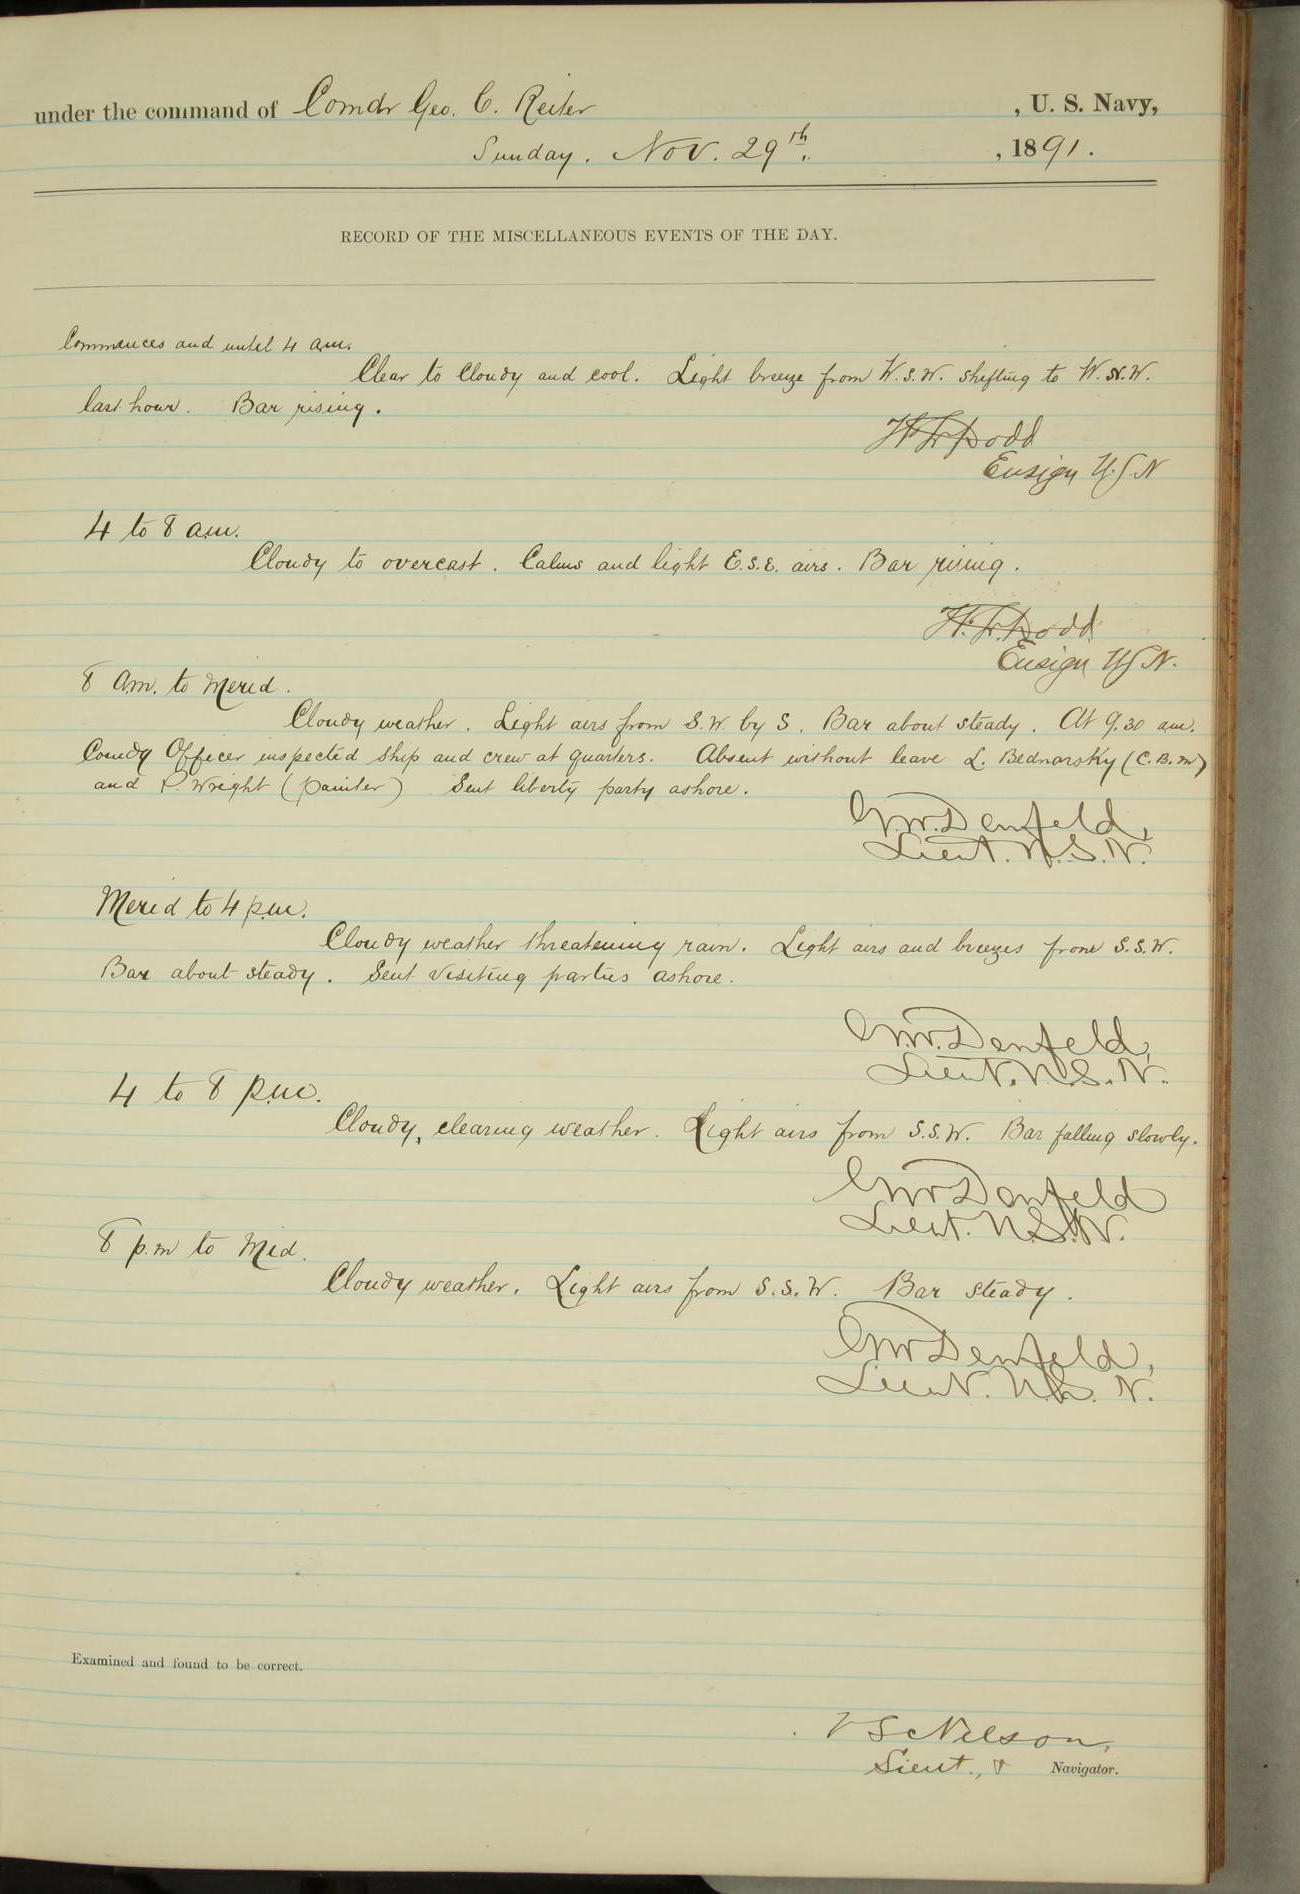 under the command of Comdr Geo. C. Reiter , U. S. Navy,
Sunday. Nov. 29th. , 1891.
RECORD OF THE MISCELLANEOUS EVENTS OF THE DAY.
Commences and until 4 a.m.
Clear to Cloudy and cool. Light breeze from W.S.W. shifting to W.N.W.
last hour. Bar rising.
Dodd
Ensign U.S.N
4 to 8 a.m.
Cloudy to overcast. Calms and light E.S.E. airs. Bar rising.
Dodd
Ensign U.S.N.
8 Am. to Merid.
Cloudy weather. Light airs from S.W. by S. Bar about steady. At 9.30 am.
Comdg Officer inspected ship and crew at quarters. Absent without leave L. Bednarsky (C.B.M)
and P. Wright (painter) Sent liberty party ashore.
G.W. Denfeld,
Lieut. U.S.N.
Merid to 4 p.m.
Cloudy weather threatening rain. Light airs and breezes from S.S.W.
Bar about steady. Sent visiting parties ashore.
G.W. Denfeld,
Lieut. U.S.N.
4 to 8 p.m.
Cloudy, clearing weather. Light airs from S.S.W. Bar falling slowly.
G.W. Denfeld
Lieut. U.S.N.
8 p.m to Mid.
Cloudy weather. Light airs from S.S.W. Bar steady.
G.W. Denfeld,
Lieut. U.S.N.
Examined and found to be correct.
V S Nelson,
Lieut., & Navigator.